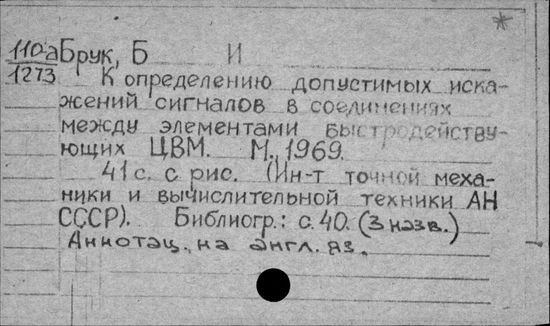 110-а Брук, Б И
1273 К определению допустимых иска-
жений сигналов в соединениях
между элементами быстродейству-
ющих ЦВМ. М., 1969.
41 с. с рис. (Ин-т точной меха-
ники и вычислительной техники АН
СССР). Библиогр.: с. 40. (3 назв.)
Аннотац. на англ. яз.